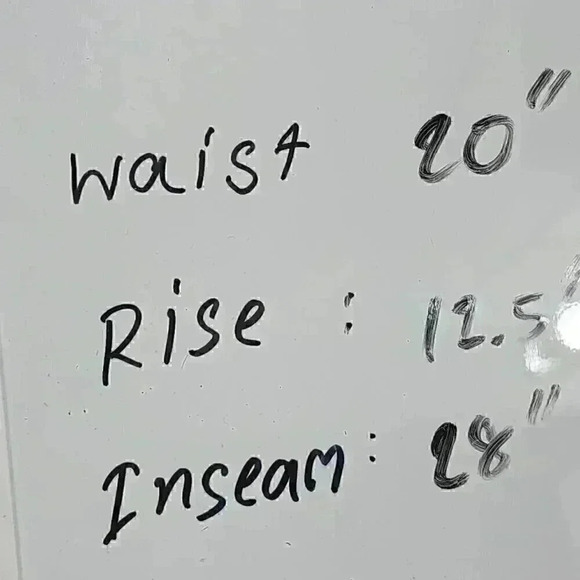 Waist 20"
Rise : 12.5"
Inseam: 28"